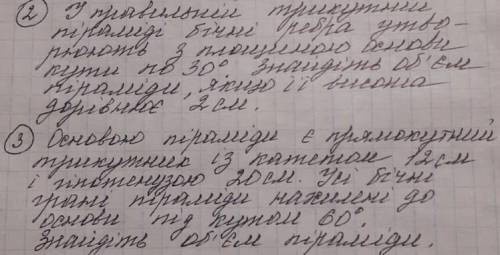 ② У правильній трикутній
піраміді бічні ребра утво-
рюють з площиною основи
кути по 30° Знайдіть об'єм
піраміди, якщо її висота
дорівнює 2см.
③ Основою піраміди є прямокутний
трикутник із катетом 12см
і гіпотенузою 20см. Усі бічні
грані піраміди нахилені до
основи під кутом 60°.
Знайдіть об'єм піраміди.